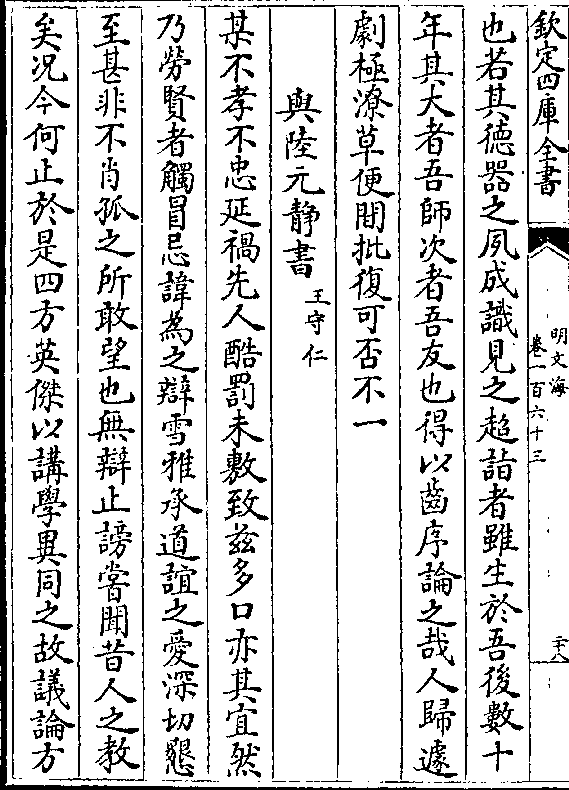 欽定四庫全書
明文海
卷一百六十三
二十八
也若其徳器之夙成識見之超詣者雖生於吾後數十
年其大者吾師次者吾友也得以齒序論之哉人歸遽
劇極潦草便閒批復可否不一
與陸元靜書
王守仁
某不孝不忠延禍先人酷罰未敷致兹多口亦其宜然
乃勞賢者觸冒忌諱為之辯雪雅承道誼之愛深切懇
至甚非不肖孤之所敢望也無辯止謗嘗聞昔人之教
矣况今何止於是四方英傑以講學異同之故議論方